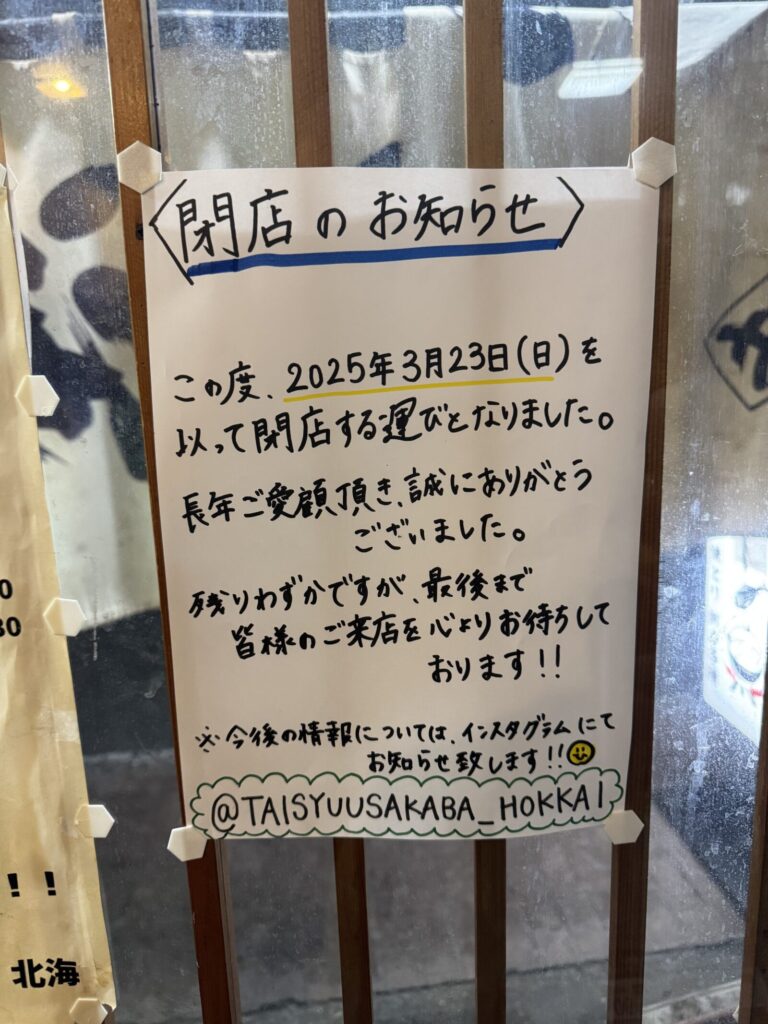 〈閉店のお知らせ〉
この度、2025年3月23日(日)を
以って閉店する運びとなりました。
長年ご愛顧頂き、誠にありがとう
ございました。
残りわずかですが、最後まで
皆様のご来店を心よりお待ちして
おります!!
※今後の情報については、インスタグラムにて
お知らせ致します!!
@TAISYUUSAKABA_HOKKAI
0
30
!!
北海